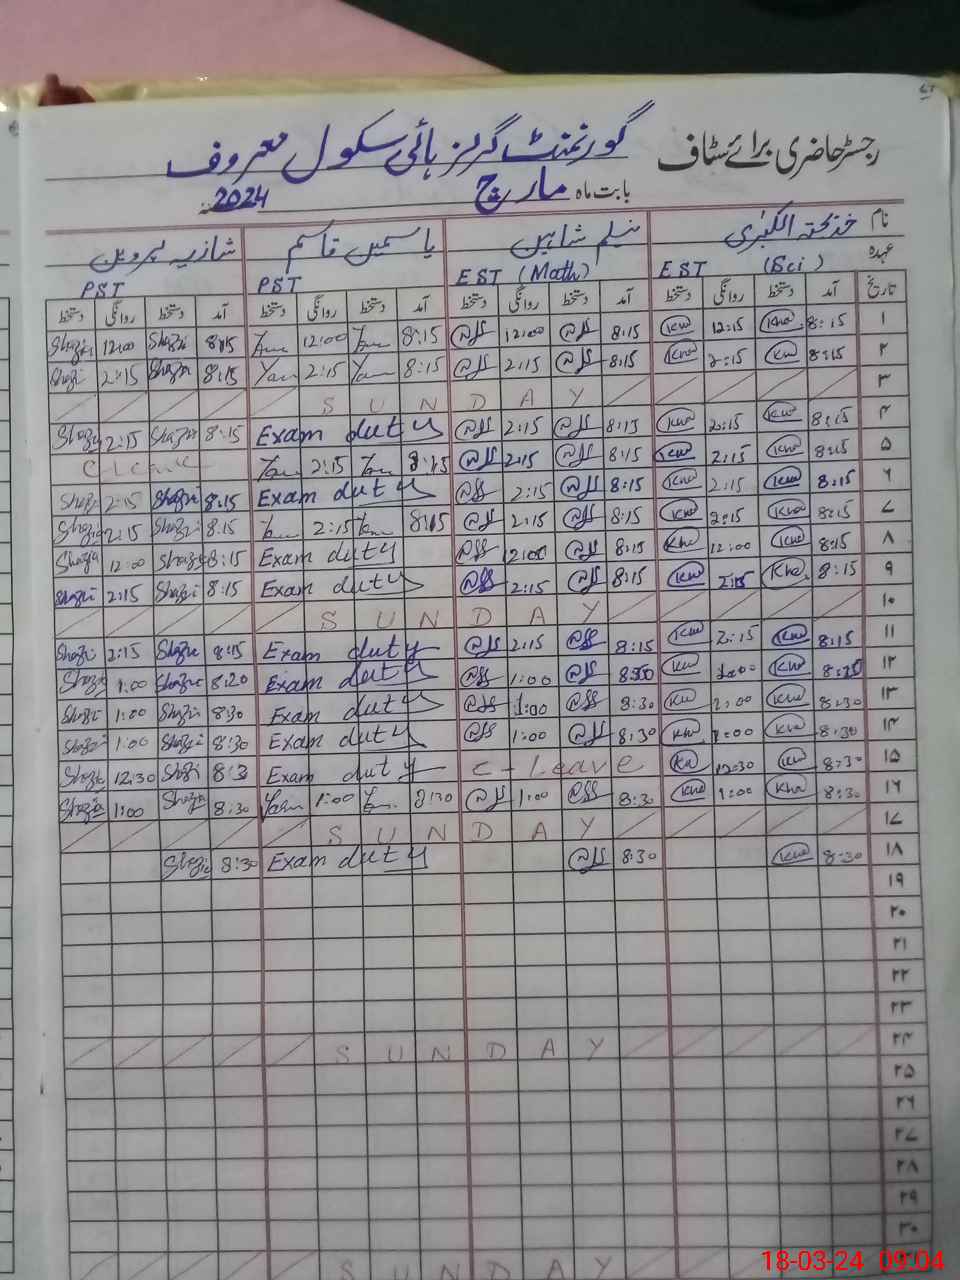 رجسٹر حاضری برائے سٹاف گورنمنٹ گرلز ہائی سکول معروف
بابت ماہ مارچ 2024
نام خدیجتہ الکبریٰ نیلم شاہین یاسمین قاسم شازیہ پروین
عہدہ EST (Sci) EST (Math) PST PST
تاریخ آمد دستخط روانگی دستخط آمد دستخط روانگی دستخط آمد دستخط روانگی دستخط آمد دستخط روانگی دستخط
۱ 8:15 Kha 12:15 Kha 8:15 12:00 8:15 12:00 8:15 Shazi 12:00 Shazi
۲ 8:15 Kha 2:15 Kha 8:15 2:15 8:15 2:15 8:15 Shazi 2:15 Shazi
۳ SUNDAY
۴ 8:15 Kha 2:15 Kha 8:15 2:15 Exam duty 8:15 Shazi 2:15 Shazi
۵ 8:15 Kha 2:15 Kha 8:15 2:15 8:15 2:15 C leave
۶ 8:15 Kha 2:15 Kha 8:15 2:15 Exam duty 8:15 Shazi 2:15 Shazi
۷ 8:15 Kha 2:15 Kha 8:15 2:15 8:15 2:15 8:15 Shazi 2:15 Shazi
۸ 8:15 Kha 12:00 Kha 8:15 12:00 Exam duty 8:15 Shazi 12:00 Shazi
۹ 8:15 Kha 2:15 Kha 8:15 2:15 Exam duty 8:15 Shazi 2:15 Shazi
۱۰ SUNDAY
۱۱ 8:15 Kha 2:15 Kha 8:15 2:15 Exam duty 8:15 Shazi 2:15 Shazi
۱۲ Kha 1:00 Kha 1:00 Exam duty 8:20 Shazi 1:00 Shazi
۱۳ 8:30 Kha 1:00 Kha 8:30 1:00 Exam duty 8:30 Shazi 1:00 Shazi
۱۴ 8:30 Kha 1:00 Kha 8:30 1:00 Exam duty 8:30 Shazi 1:00 Shazi
۱۵ 8:30 Kha 12:30 Kha C-Leave Exam duty 8:3 Shazi 12:30 Shazi
۱۶ 8:30 Kha 1:00 Kha 8:30 1:00 8:30 1:00 8:30 Shazi 1:00 Shazi
۱۷ SUNDAY
۱۸ 8:30 Kha 8:30 Exam duty 8:30 Shazi
۱۹
۲۰
۲۱
۲۲
۲۳
۲۴ SUNDAY
۲۵
۲۶
۲۷
۲۸
۲۹
۳۰
SUNDAY
18-03-24 09:04